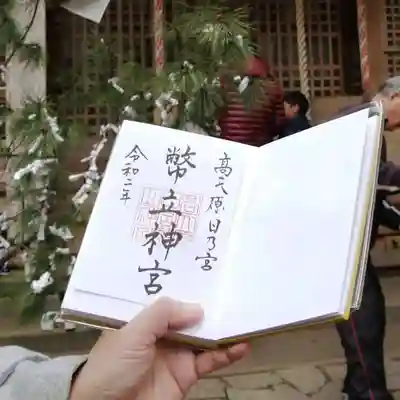 高天原日乃宮
幣立神宮
令和二年